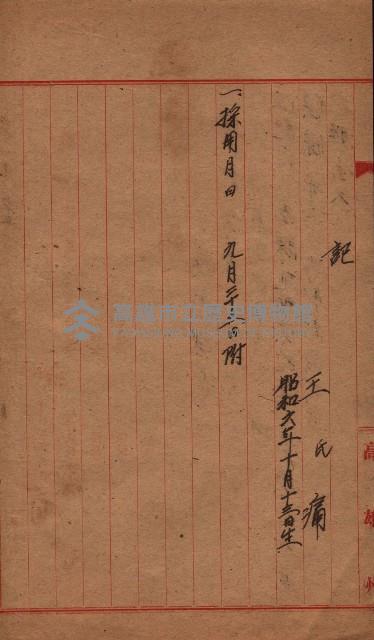 記
王氏痛
昭和六年十月十三日生
一、採用月日 九月三十日附
高雄州
高雄市立歷史博物館